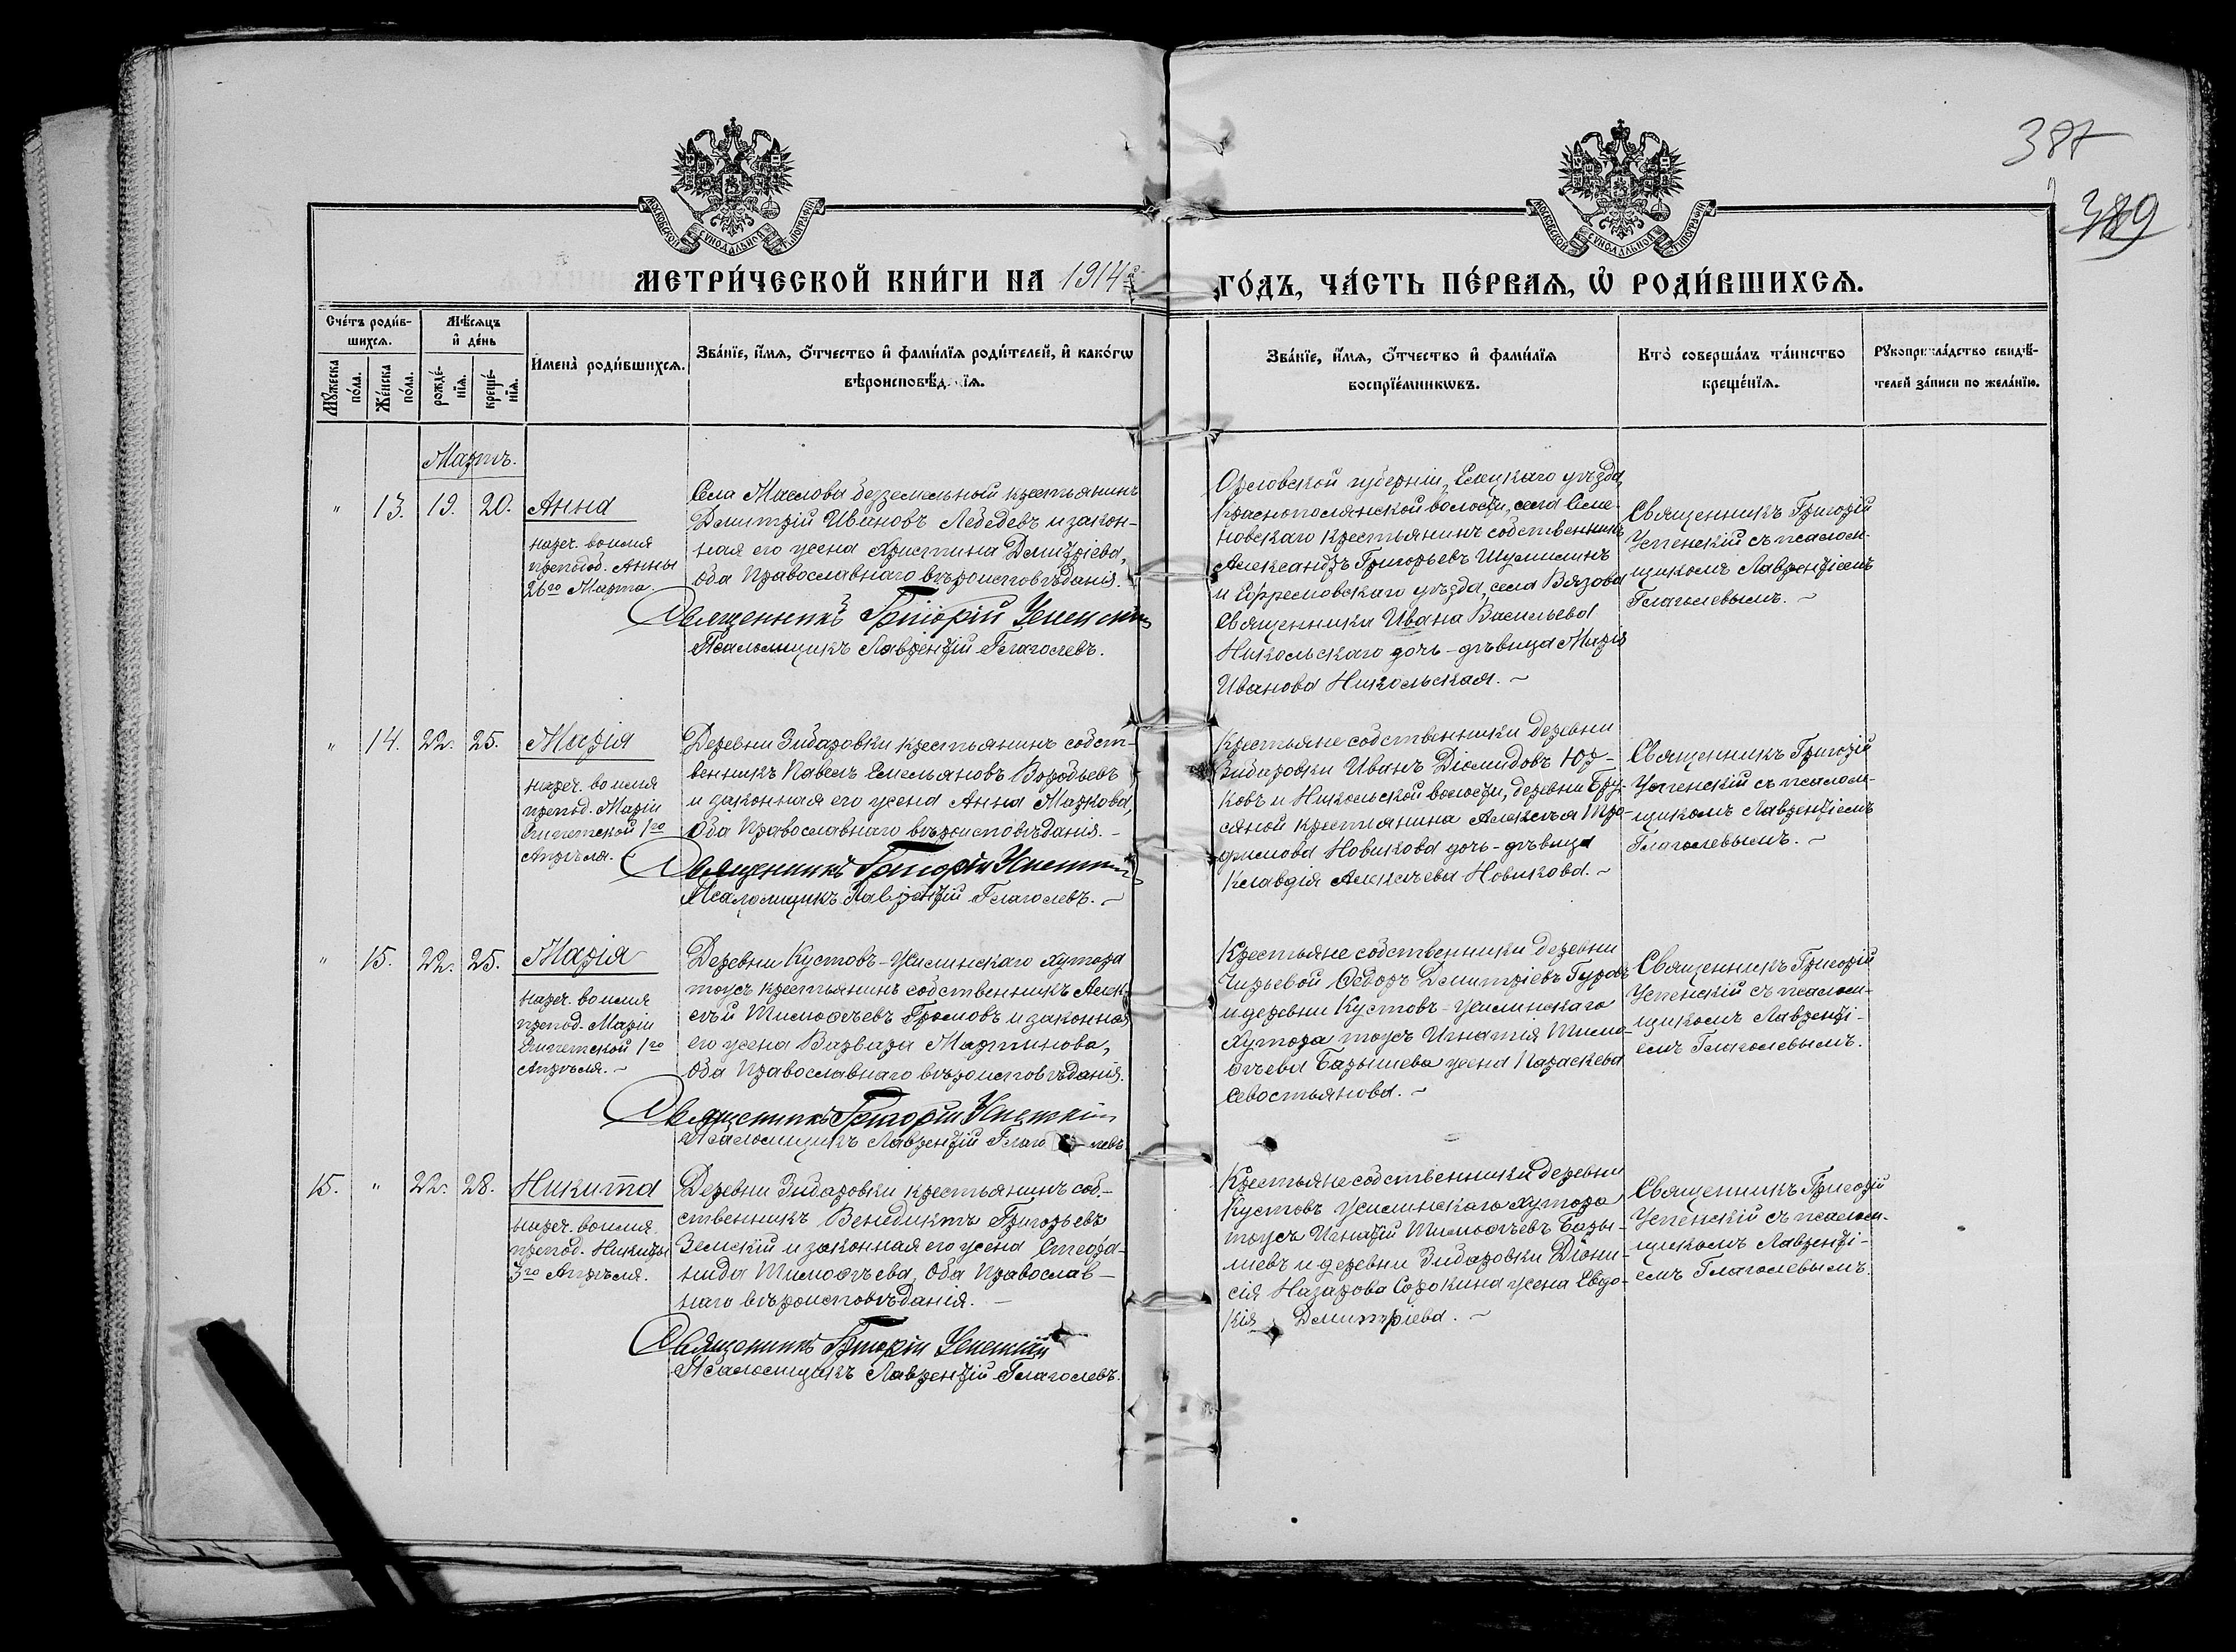 387
389
МОСКОВСКОЙ СѴНОДАЛЬНОЙ ТИПОГРАФІИ
МОСКОВСКОЙ СѴНОДАЛЬНОЙ ТИПОГРАФІИ
МЕТРИ́ЧЕСКОЙ КНИ́ГИ НА 1914 ГО́ДЪ, ЧА́СТЬ ПЕ́РВАѦ, Ѽ РОДИ́ВШИХСѦ.
Сче́тъ роди́в-
шихсѧ.
Мꙋ́жеска по́ла.
Же́нска по́ла.
Мѣ́сѧцъ
и҆ де́нь
рожде́-
нїѧ.
креще́-
нїѧ.
И҆мена̀ роди́вшихсѧ.
Зва́нїе, и҆́мѧ, ѻ҆́тчество и҆ фами́лїѧ роди́телей, и҆ како́гѡ
вѣроисповѣ́д нїѧ.
Зва́нїе, и҆́мѧ, ѻ҆́тчество и҆ фами́лїѧ
воспрїе́мникѡвъ.
Кто̀ соверша́лъ та́инство
креще́нїѧ.
Рꙋкоприкла́дство свидѣ́-
телей за́писи по жела́нїю.
Мартъ.
" 13. 19. 20. Анна
нареч. во имя
преподоб. Анны
26го Марта.
Села Маслова безземельный крестьянинъ
Димитрій Ивановъ Лебедевъ и закон-
ная его жена Христина Димитріева,
оба Православнаго вѣроисповѣданія.
Священникъ Григорій Успенскій
Псаломщикъ Лаврентій Глаголевъ.
Орловской губерніи, Елецкаго уѣзда,
Краснополянской волости, села Семе-
новскаго крестьянинъ собственникъ
Александръ Григорьевъ Шумилинъ
и Ефремовскаго уѣзда, села Вязова
Священника Ивана Васильева
Никольскаго дочь-дѣвица Марія
Иванова Никольская.
Священникъ Григорій
Успенскій съ псалом-
щикомъ Лаврентіемъ
Глаголевымъ.
" 14. 22. 25. Марія
нареч. во имя
препод. Маріи
Египетской 1го
Апрѣля.
Деревни Зибаровки крестьянинъ собст-
венникъ Павелъ Емельяновъ Воробьевъ
и законная его жена Анна Маркова,
Оба Православнаго вѣроисповѣданія.
Священникъ Григорій Успенскій
Псаломщикъ Лаврентій Глаголевъ.
Крестьяне собственники деревни
Зибаровки Иванъ Діомидовъ Юр-
ковъ и Никольской волости, деревни Бру-
сяной крестьянина Алексѣя Тро-
фимова Новикова дочь-дѣвица
Клавдія Алексѣева Новикова.
Священникъ Григорій
Успенскій съ псалом-
щикомъ Лаврентіемъ
Глаголевымъ.
" 15. 22. 25. Марія
нареч. во имя
препод. Маріи
Египетской 1го
Апрѣля.
Деревни Кустовъ-Усилинскаго хутора
тоусъ крестьянинъ собственникъ Алек-
сѣй Тимоѳѣевъ Громовъ и законная
его жена Варвара Мартинова,
оба Православнаго вѣроисповѣданія.
Священникъ Григорій Успенскій
Псаломщикъ Лаврентій Глаго-левъ.
Крестьяне собственники деревни
Чирьевой Ѳедоръ Димитріевъ Гуровъ
и деревни Кустовъ-Усилинскаго
Хутора тоусъ Игнатія Тимо-
ѳѣева Барышева жена Параскева
Севостьянова.
Священникъ Григорій
Успенскій съ псалом-
щикомъ Лавренті-
емъ Глаголевымъ.
15. " 22. 28. Никита
нареч. во имя
препод. Никиты
3го Апрѣля.
Деревни Зибаровки крестьянинъ соб-
ственникъ Венедиктъ Григорьевъ
Земскій и законная его жена Стефа-
нида Тимоѳѣева, Оба Православ-
наго вѣроисповѣданія.
Священникъ Григорій Успенскій
Псаломщикъ Лаврентій Глаголевъ.
Крестьяне собственники деревни
Кустовъ Усилинскаго хутора
тоусъ Игнатій Тимоѳѣевъ Бары-
шевъ и деревни Зибаровки Діони-
сія Назарова Сорокина жена Евдо-
кія Димитріева.
Священникъ Григорій
Успенскій съ псалом-
щикомъ Лавренті-
емъ Глаголевымъ.